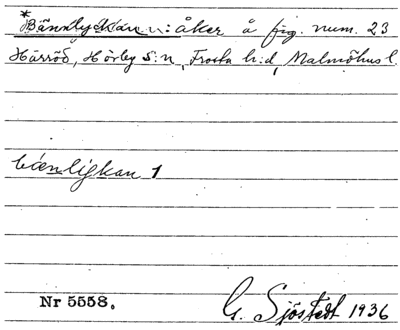 *Bännlyckan n: åker å fig. num. 23
Härröd, Hörby s:n, Frosta h:d, Malmöhus l.
bænligkan 1
Nr 5558. G. Sjöstedt 1936